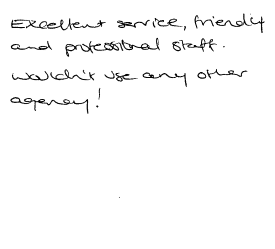 Excellent service, friendly
and professional staff.
Wouldn't use any other
agency!